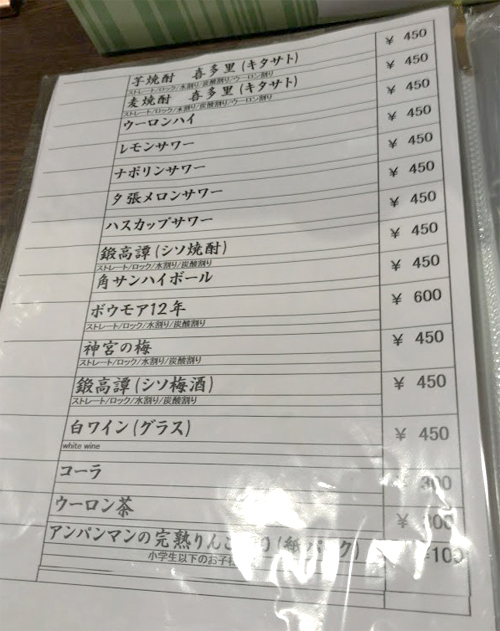 芋焼酎　喜多里(キタサト) ¥ 450
ストレート/ロック/水割り/炭酸割り/ウーロン割り
麦焼酎　喜多里(キタサト) ¥ 450
ストレート/ロック/水割り/炭酸割り/ウーロン割り
ウーロンハイ ¥ 450
レモンサワー ¥ 450
ナポリンサワー ¥ 450
夕張メロンサワー ¥ 450
ハスカップサワー ¥ 450
鍛高譚(シソ焼酎) ¥ 450
ストレート/ロック/水割り/炭酸割り
角サンハイボール ¥ 450
ボウモア12年 ¥ 600
ストレート/ロック/水割り/炭酸割り
神宮の梅 ¥ 450
ストレート/ロック/水割り/炭酸割り
鍛高譚(シソ梅酒) ¥ 450
ストレート/ロック/水割り/炭酸割り
白ワイン(グラス) ¥ 450
white wine
コーラ ¥ 300
ウーロン茶 ¥ 300
アンパンマンの完熟りんご (紙パック) ¥100
小学生以下のお子様